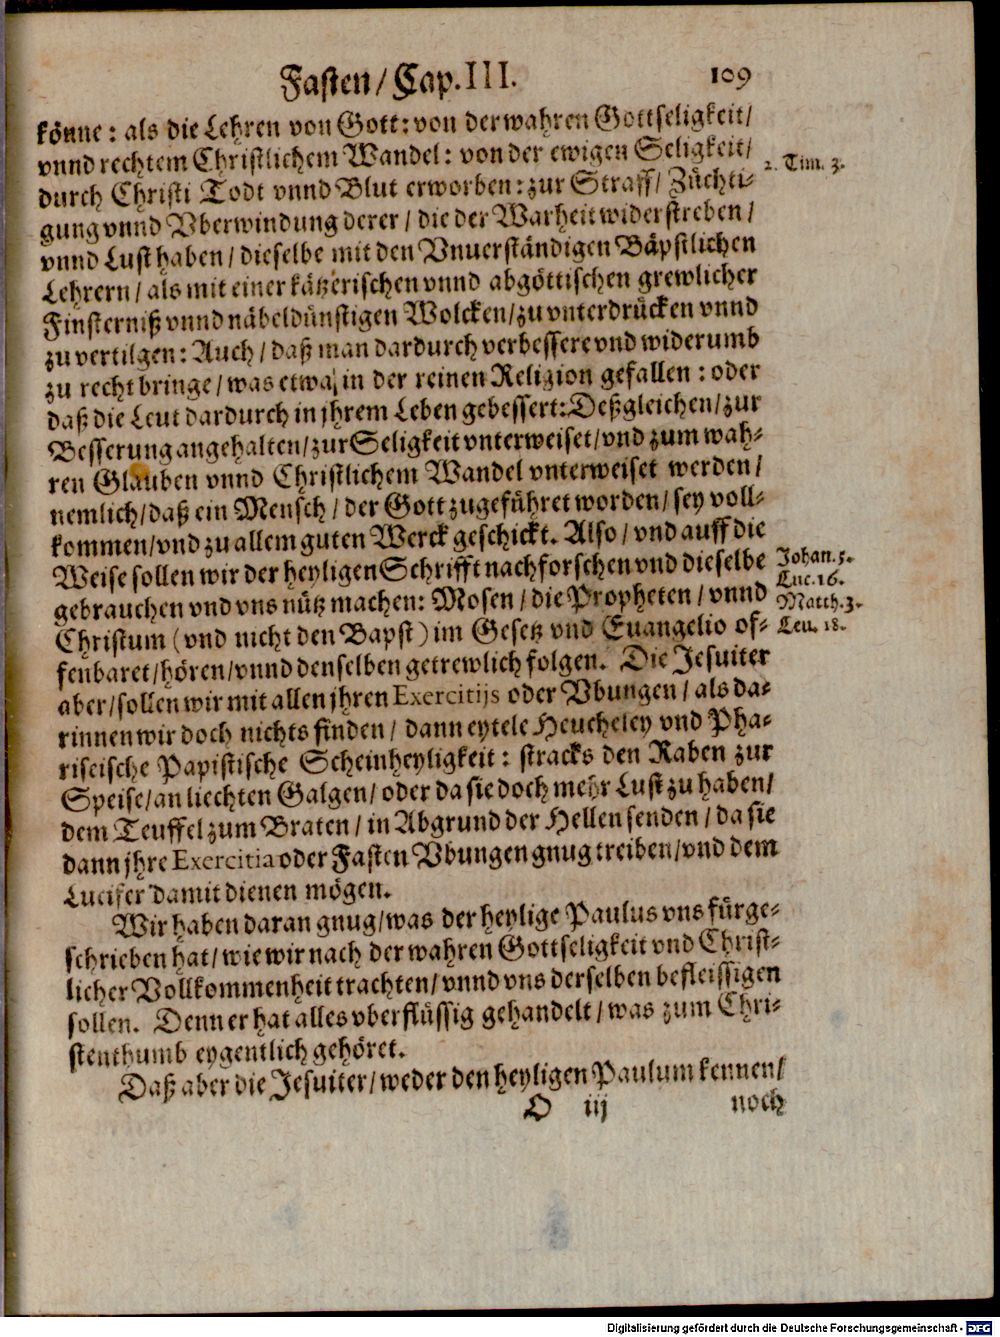 Fasten/ Cap. III. 109
könne: als die Lehren von Gott: von der wahren Gottseligkeit/
vnnd rechtem Christlichem Wandel: von der ewigen Seligkeit/
2. Tim. 3.
durch Christi Todt vnnd Blut erworben: zur Straff/ Züchti-
gung vnnd Vberwindung derer/ die der Warheit widerstreben/
vnnd Lust haben/ dieselbe mit den Vnuerständigen Bäpstlichen
Lehrern/ als mit einer kätzerischen vnnd abgöttischen grewlicher
Finsterniß vnnd näbeldünstigen Wolcken/ zu vnterdrücken vnnd
zu vertilgen: Auch/ daß man dardurch verbessere vnd widerumb
zu recht bringe/ was etwa in der reinen Religion gefallen: oder
daß die Leut dardurch in jhrem Leben gebessert: Deßgleichen/ zur
Besserung angehalten/ zur Seligkeit vnterweiset/ vnd zum wah-
ren Glauben vnnd Christlichem Wandel vnterweiset werden/
nemlich/ daß ein Mensch/ der Gott zugeführet worden/ sey voll-
kommen/ vnd zu allem guten Werck geschickt. Also/ vnd auff die
Weise sollen wir der heyligen Schrifft nachforschen vnd dieselbe
Johan. 5.
Luc. 16.
gebrauchen vnd vns nütz machen: Mosen/ die Propheten/ vnnd
Matth. 3.
Christum (vnd nicht den Bapst) im Gesetz vnd Euangelio of-
Leu. 18.
fenbaret/ hören/ vnnd denselben getrewlich folgen. Die Jesuiter
aber/ sollen wir mit allen jhren Exercitijs oder Vbungen/ als da-
rinnen wir doch nichts finden/ dann eytele Heucheley vnd Pha-
riseische Papistische Scheinheyligkeit: stracks den Raben zur
Speise/ an liechten Galgen/ oder da sie doch mehr Lust zu haben/
dem Teuffel zum Braten/ in Abgrund der Hellen senden/ da sie
dann jhre Exercitia oder Fasten Vbungen gnug treiben/ vnd dem
Lucifer damit dienen mögen.
Wir haben daran gnug/ was der heylige Paulus vns fürge-
schrieben hat/ wie wir nach der wahren Gottseligkeit vnd Christ-
licher Vollkommenheit trachten/ vnnd vns derselben befleissigen
sollen. Denn er hat alles vberflüssig gehandelt/ was zum Chri-
stenthumb eygentlich gehöret.
Daß aber die Jesuiter/ weder den heyligen Paulum kennen/
O iij noch
Digitalisierung gefördert durch die Deutsche Forschungsgemeinschaft - DFG